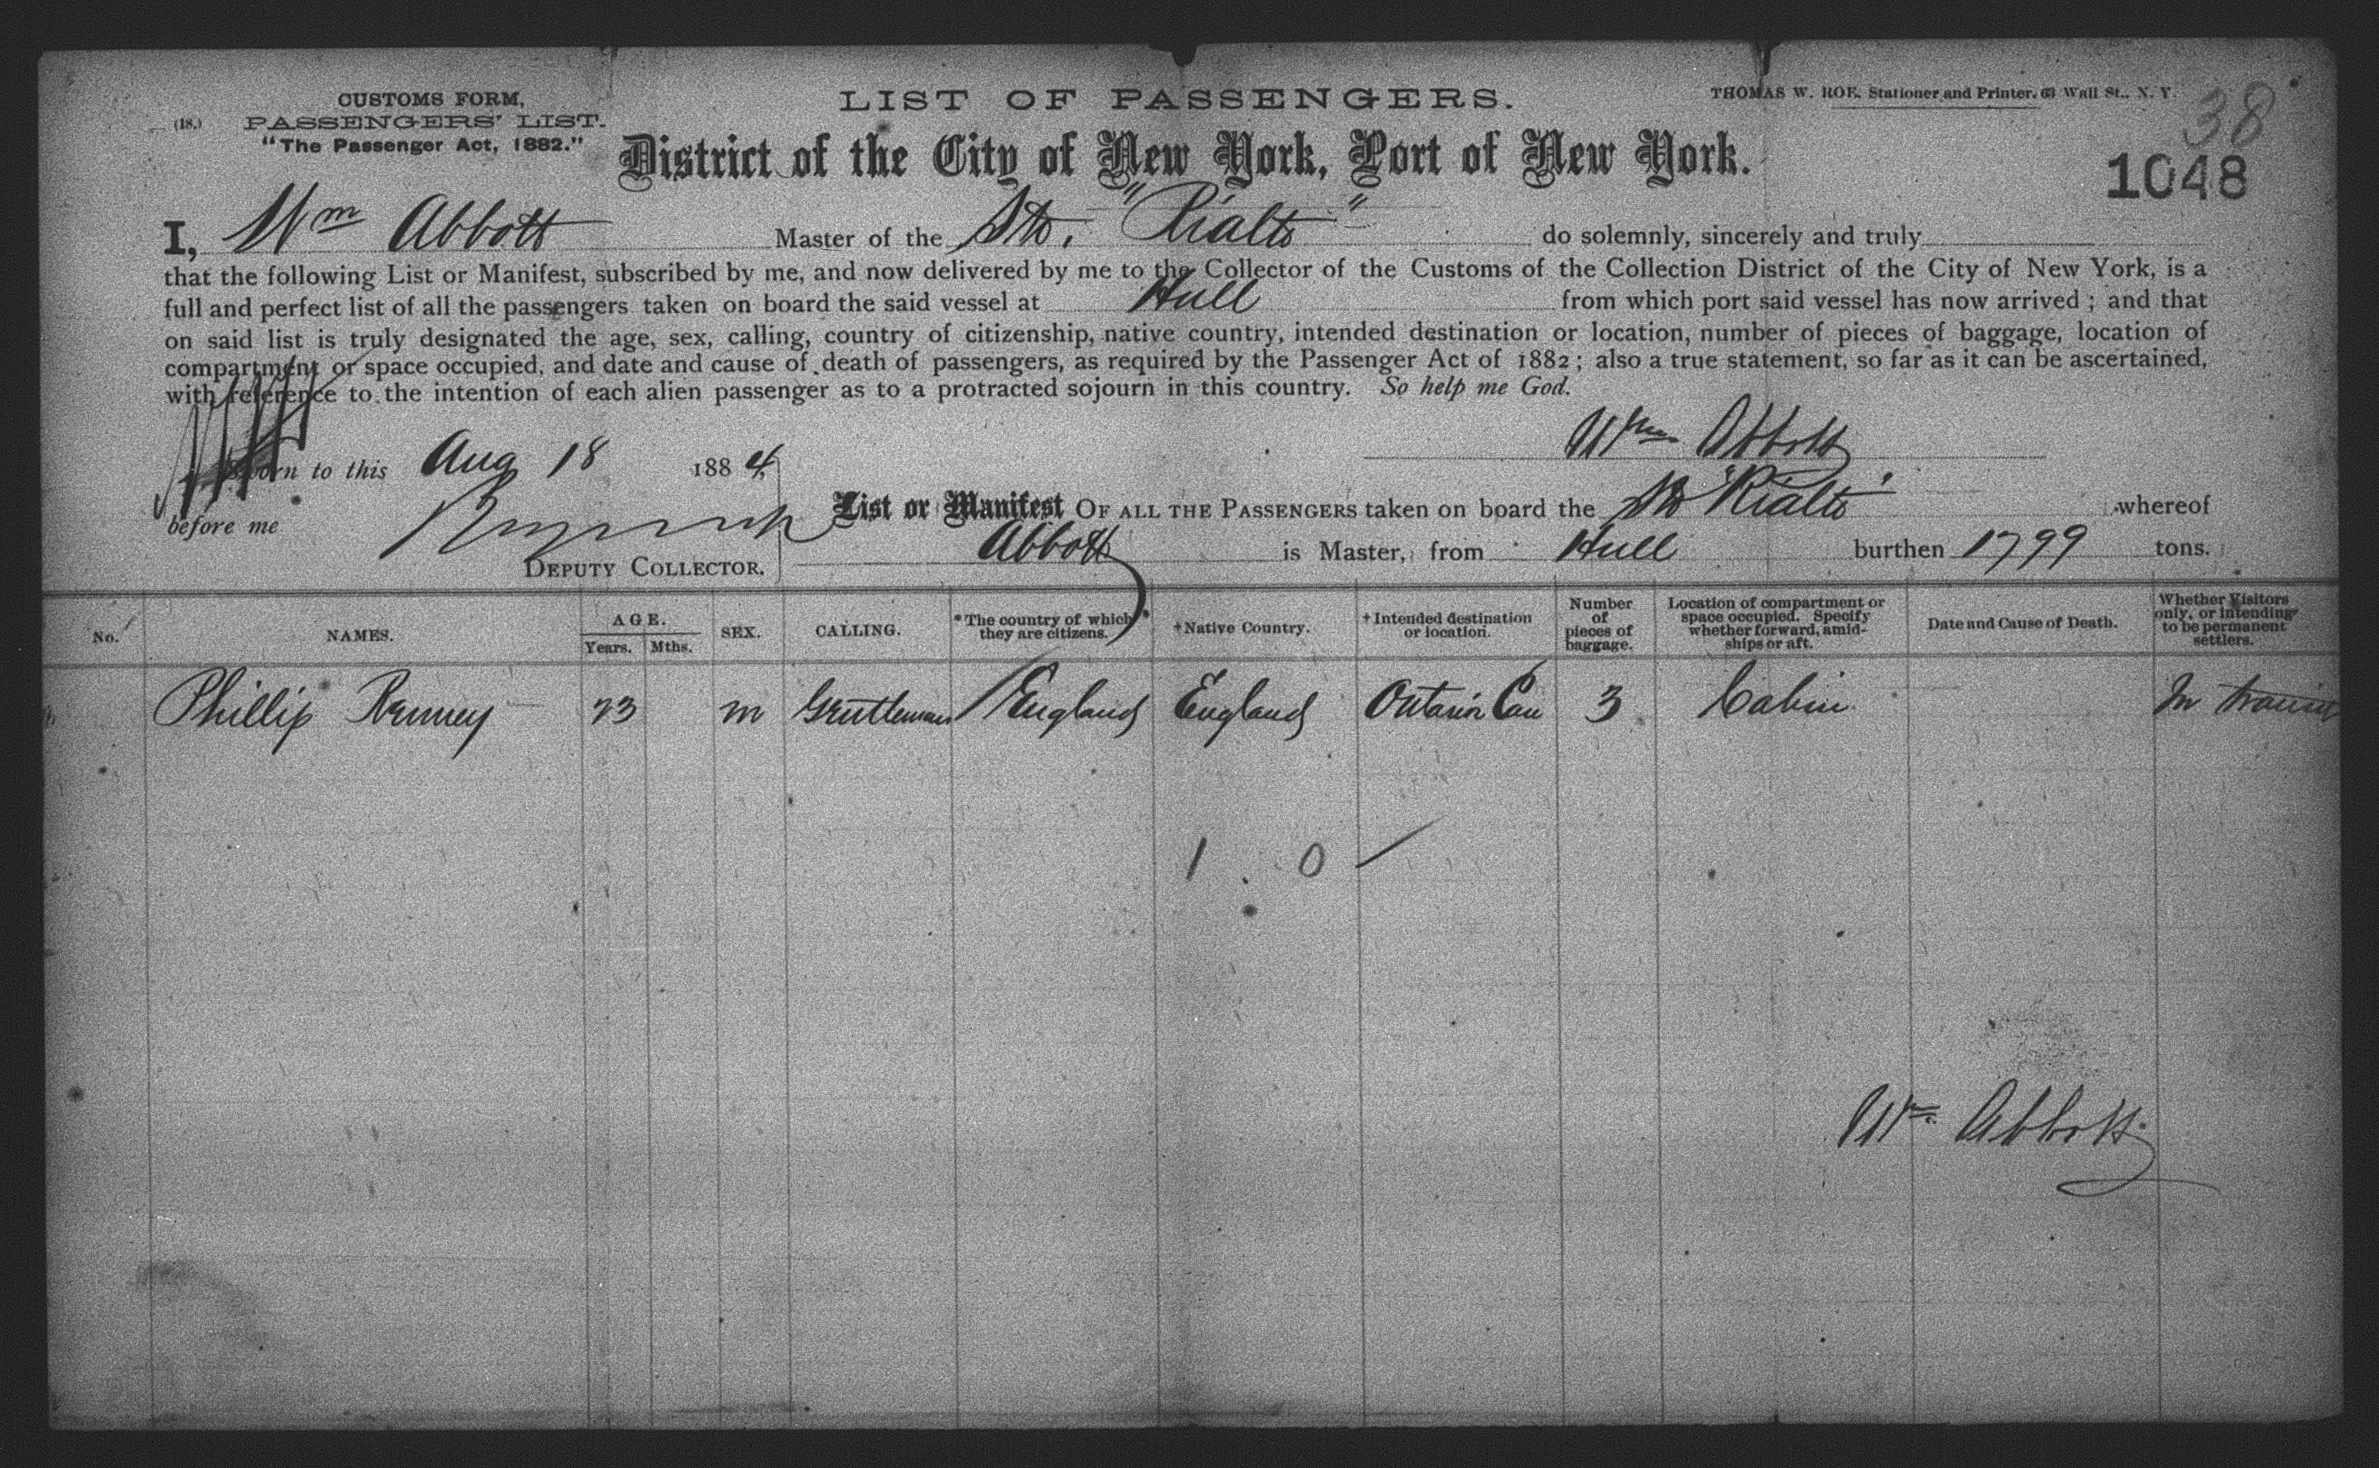 CUSTOMS FORM,
(18.) PASSENGERS' LIST.
"The Passenger Act, 1882."
LIST OF PASSENGERS.
THOMAS W. ROE. Stationer and Printer. 63 Wall St., N. Y.
38
1048
District of the City of New York, Port of New York.
I, Wm Abbott Master of the Str. "Rialto" do solemnly, sincerely and truly
that the following List or Manifest, subscribed by me, and now delivered by me to the Collector of the Customs of the Collection District of the City of New York, is a
full and perfect list of all the passengers taken on board the said vessel at Hull from which port said vessel has now arrived ; and that
on said list is truly designated the age, sex, calling, country of citizenship, native country, intended destination or location, number of pieces of baggage, location of
compartment or space occupied, and date and cause of death of passengers, as required by the Passenger Act of 1882 ; also a true statement, so far as it can be ascertained,
with reference to the intention of each alien passenger as to a protracted sojourn in this country. So help me God.
Wm Abbott
Sworn to this Aug 18 1884
before me
DEPUTY COLLECTOR.
List or Manifest OF ALL THE PASSENGERS taken on board the SS "Rialto" whereof
Abbott is Master, from Hull burthen 1799 tons.
No. NAMES. AGE. Years. Mths. SEX. CALLING. *The country of which they are citizens.* +Native Country. +Intended destination or location. Number of pieces of baggage. Location of compartment or space occupied. Specify whether forward, amid-ships or aft. Date and Cause of Death. Whether Visitors only, or intending to be permanent settlers.
Phillip Penney 23 m Gentleman England England Ontario Can 3 Cabin In transit
1 . 0
Wm Abbott